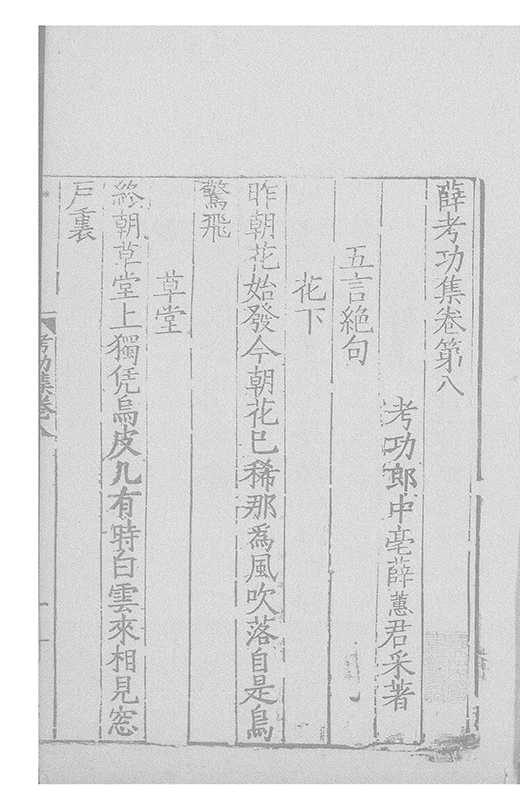 薛考功集卷第八
考功郎中亳薛蕙君采著
五言絶句
花下
昨朝花始發今朝花已稀那爲風吹落自是鳥
驚飛
草堂
終朝草堂上獨凭烏皮几有時白雲來相見窓
戶裏
考功集卷八